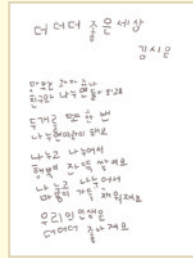 더더더 좋은 세상
김시은
맛있는 과자 하나
친구와 나누면 둘이 되고
두 개를 또 한 번
나누면 여러 개 되고
나누고 나누어서
행복이 잔뜩 쌓여요
나누고 나누어서
마음이 가득 채워져요
우리의 인생은
더더더 좋아져요